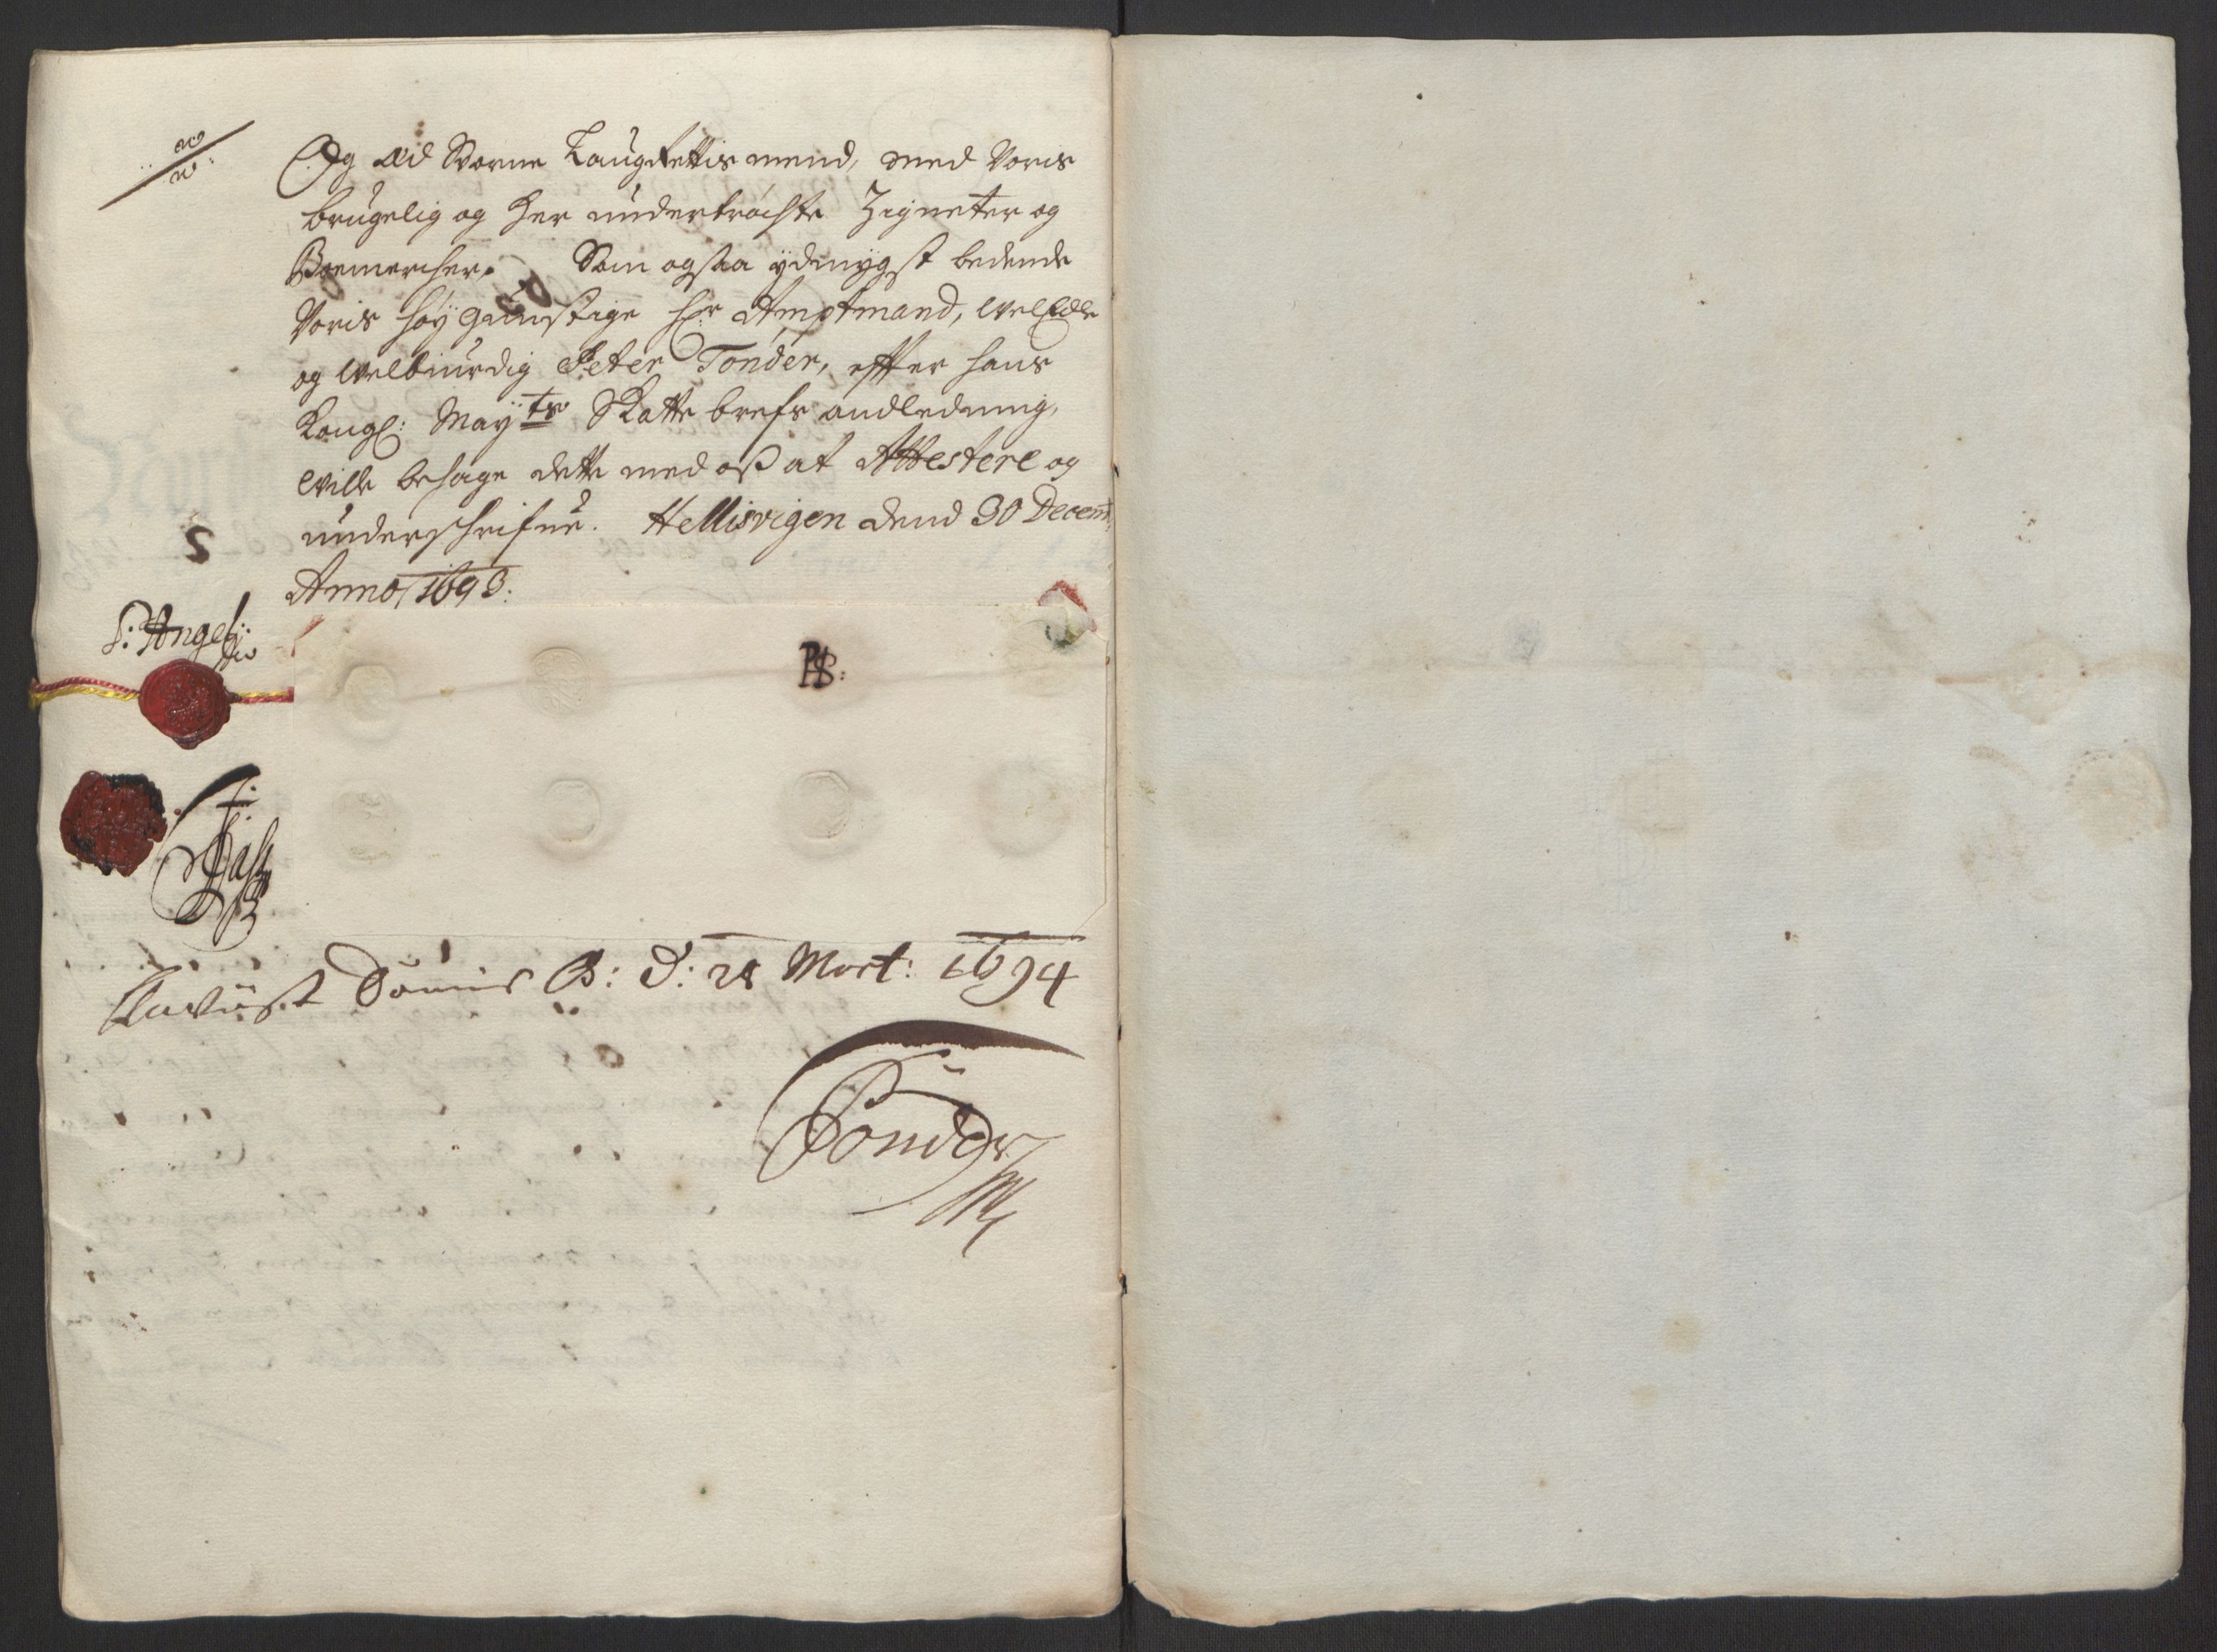 Og Æd Svorne Laugrettis mend, med Voris
brugelig og her undertrøchte Zigneter og
Boemercher. Som ogsaa ydmygst bedende
Voris høy gunstige hr Amptmand, WelEdle
og Welbiurdig Peter Tonder, effter hans
Kongl: Mayts Skatte brefs andledning,
Wille behage dette med oß at Attestere og
underschrifue. Hellisvigen dend 30 Decemb
Anno 1693:
S
P: Angell
PHS:
Tønsr
28 Mart: 1694
Tönder